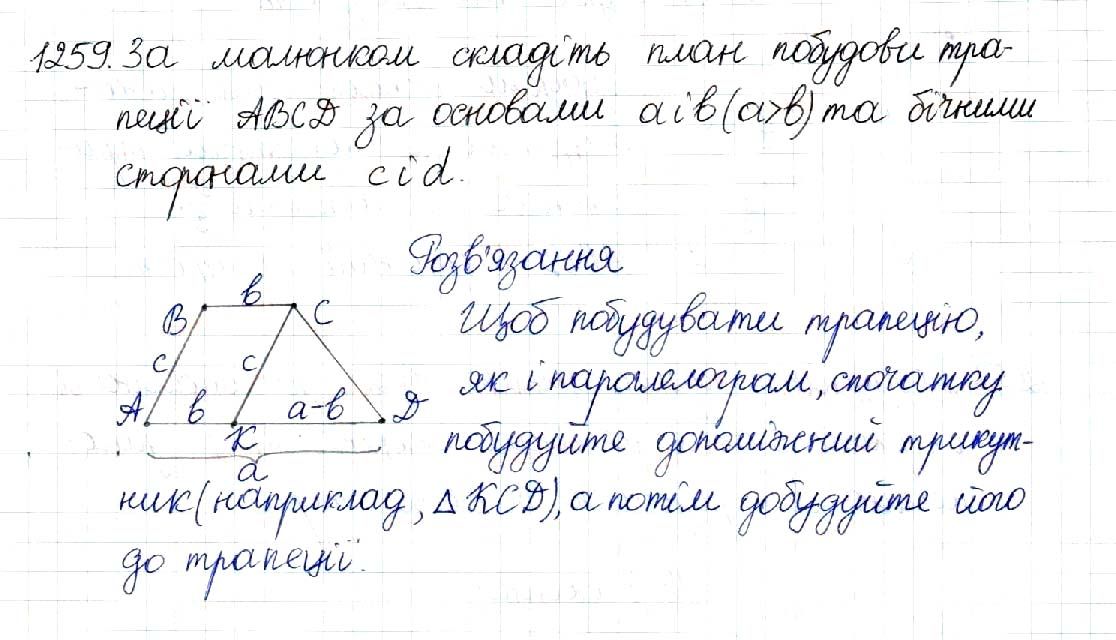 1259. За малюнком складіть план побудови тра-
пеції ABCD за основами a і b (a>b) та бічними
сторонами c і d.
Розв'язання
b
B C
c c
A b K a-b D
a
Щоб побудувати трапецію,
як і паралелограм, спочатку
побудуйте допоміжний трикут-
ник (наприклад, △KCD), а потім добудуйте його
до трапеції.